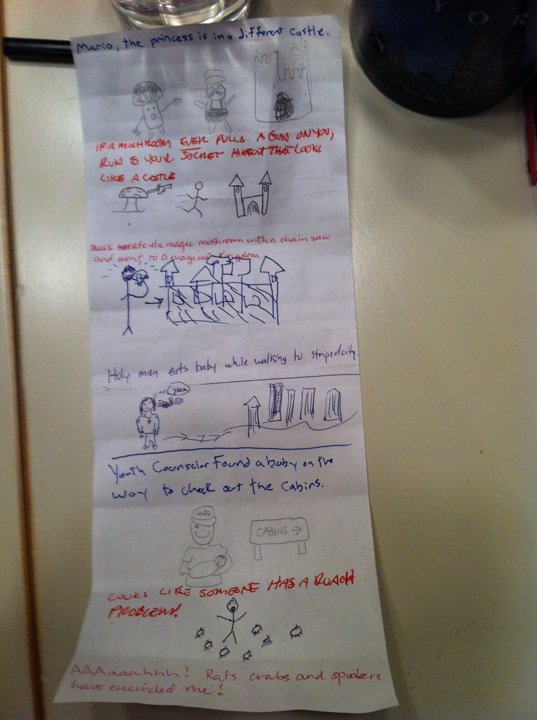 Mario, the princess is in a different castle.
IF A MUSHROOM EVER PULLS A GUN ON YOU,
RUN TO YOUR SECRET HIDEOUT THAT LOOKS
LIKE A CASTLE
ate the magic mushroom with a chain saw
and went to a magical kingdom
Holy man eats baby while walking to striped city.
yum
Youth Counselor Found a baby on the
way to check out the Cabins.
CABINS →
LOOKS LIKE SOMEONE HAS A ROACH
PROBLEM!
AAAaaahhh! Rats crabs and spiders
have encircled me!
YOR